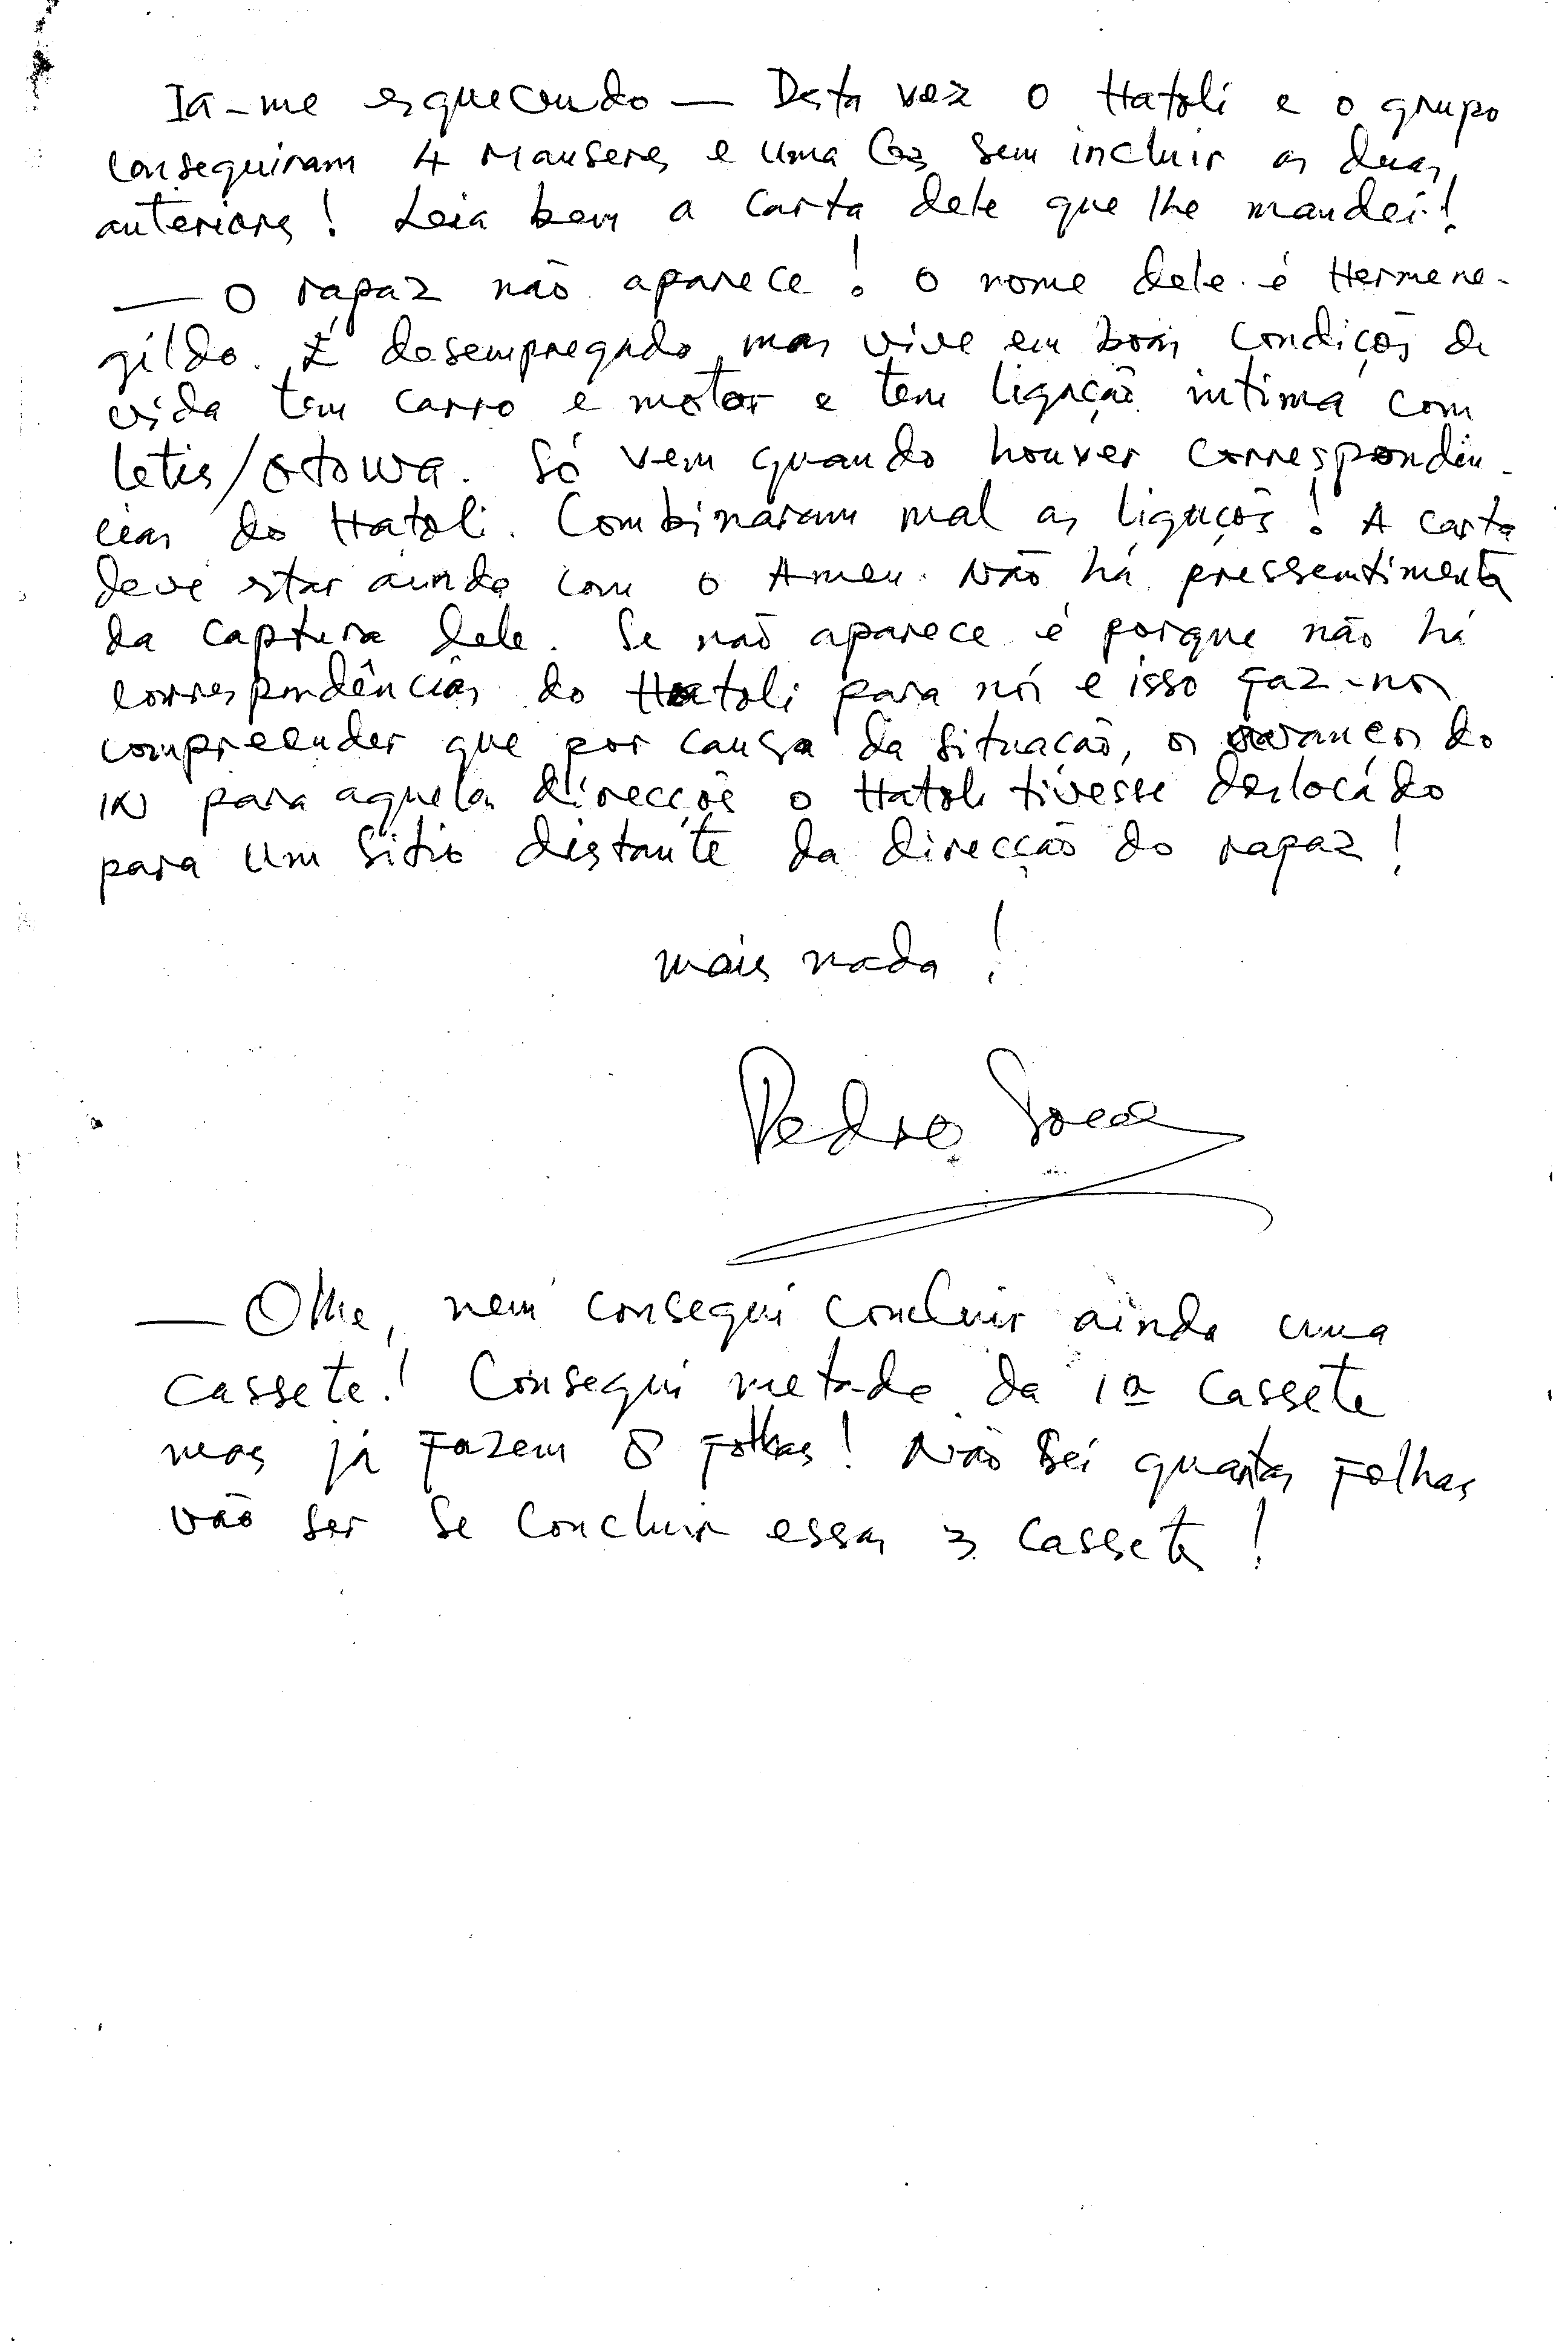 Ia-me esquecendo — Desta vez o Hatoli e o grupo
conseguiram 4 Mauseres e uma G3 sem incluir as duas
anteriores! Leia bem a carta dele que lhe mandei!
— O rapaz não aparece! O nome dele é Hermene-
gildo. É desempregado mas vive em boas condições de
vida tem carro e motor e tem ligação intima com
Letis/Otowa. Só vem quando houver correspondên-
cias do Hatoli. Combinaram mal as ligações! A carta
deve estar ainda com o Ameu. Não há pressentimento
da captura dele. Se não aparece é porque não há
correspondências do Hatoli para nós e isso faz-nos
compreender que por causa da situação, os avanços do
IN para aquelas direcções o Hatoli tivesse deslocado
para um sitio distante da direcção do rapaz!
mais nada!
Pedro
— Olhe, nem consegui concluir ainda uma
cassete! Consegui metade da 1ª cassete
mas já fazem 8 folhas! Não sei quantas folhas
vão ser se concluir essas 3 cassetes!